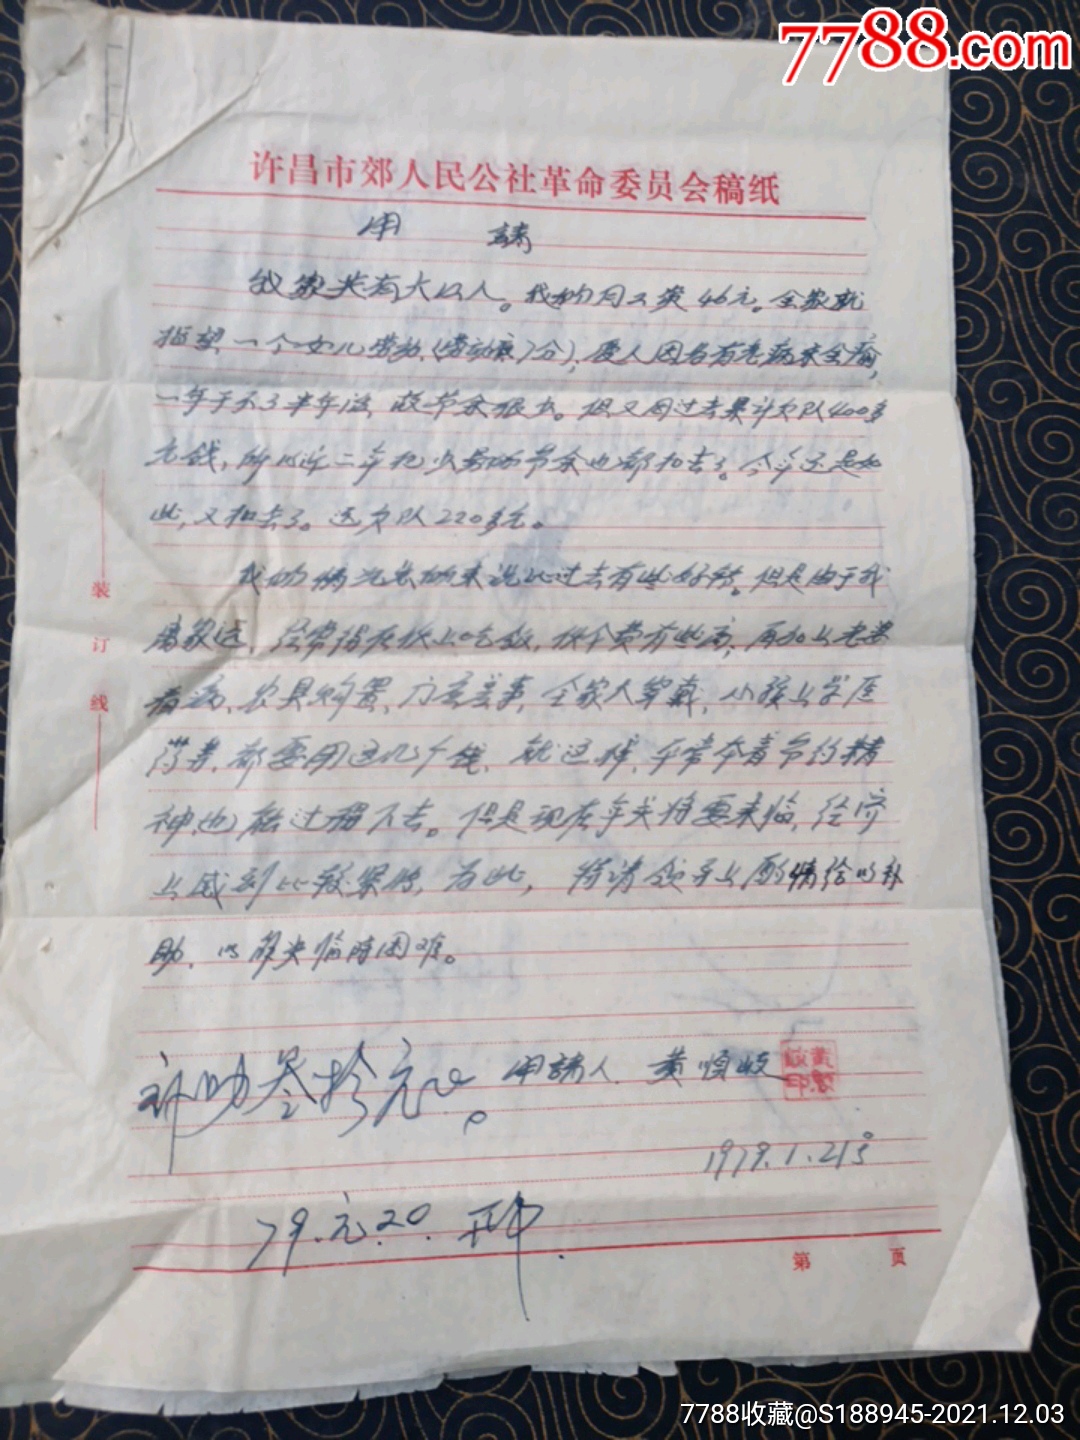 7788.com
许昌市郊人民公社革命委员会稿纸
申 請
我家共有大小人。我的月工资46元。全家就
指望一个女儿劳动,(劳动底7分),爱人因有老病未全癒,
一年干不了半年活,故节余很少。但又因过去累计欠队400多
元钱,所以近二年把少另的节余也都扣去了。今年还是如
此,又扣去了。还欠队220多元。
我的情况总的来说比过去有些好转。但是由于我
离家远,经常得在伙上吃饭,伙食费有些高,再加上老婆
看病、农具购置、门户差事,全家人穿戴,小孩上学医
药费,都要用这几个钱,就这样,平常本着节约精
神也能过得下去。但是现在年关将要来临,经济
上感到比较紧张,为此,特请领导上酌情给以补
助,以解决临时困难。
申請人 黄順岐
补助叁拾元正。
1979.1.21号
79.元.20.
装订线
第 页
7788收藏@S188945-2021.12.03